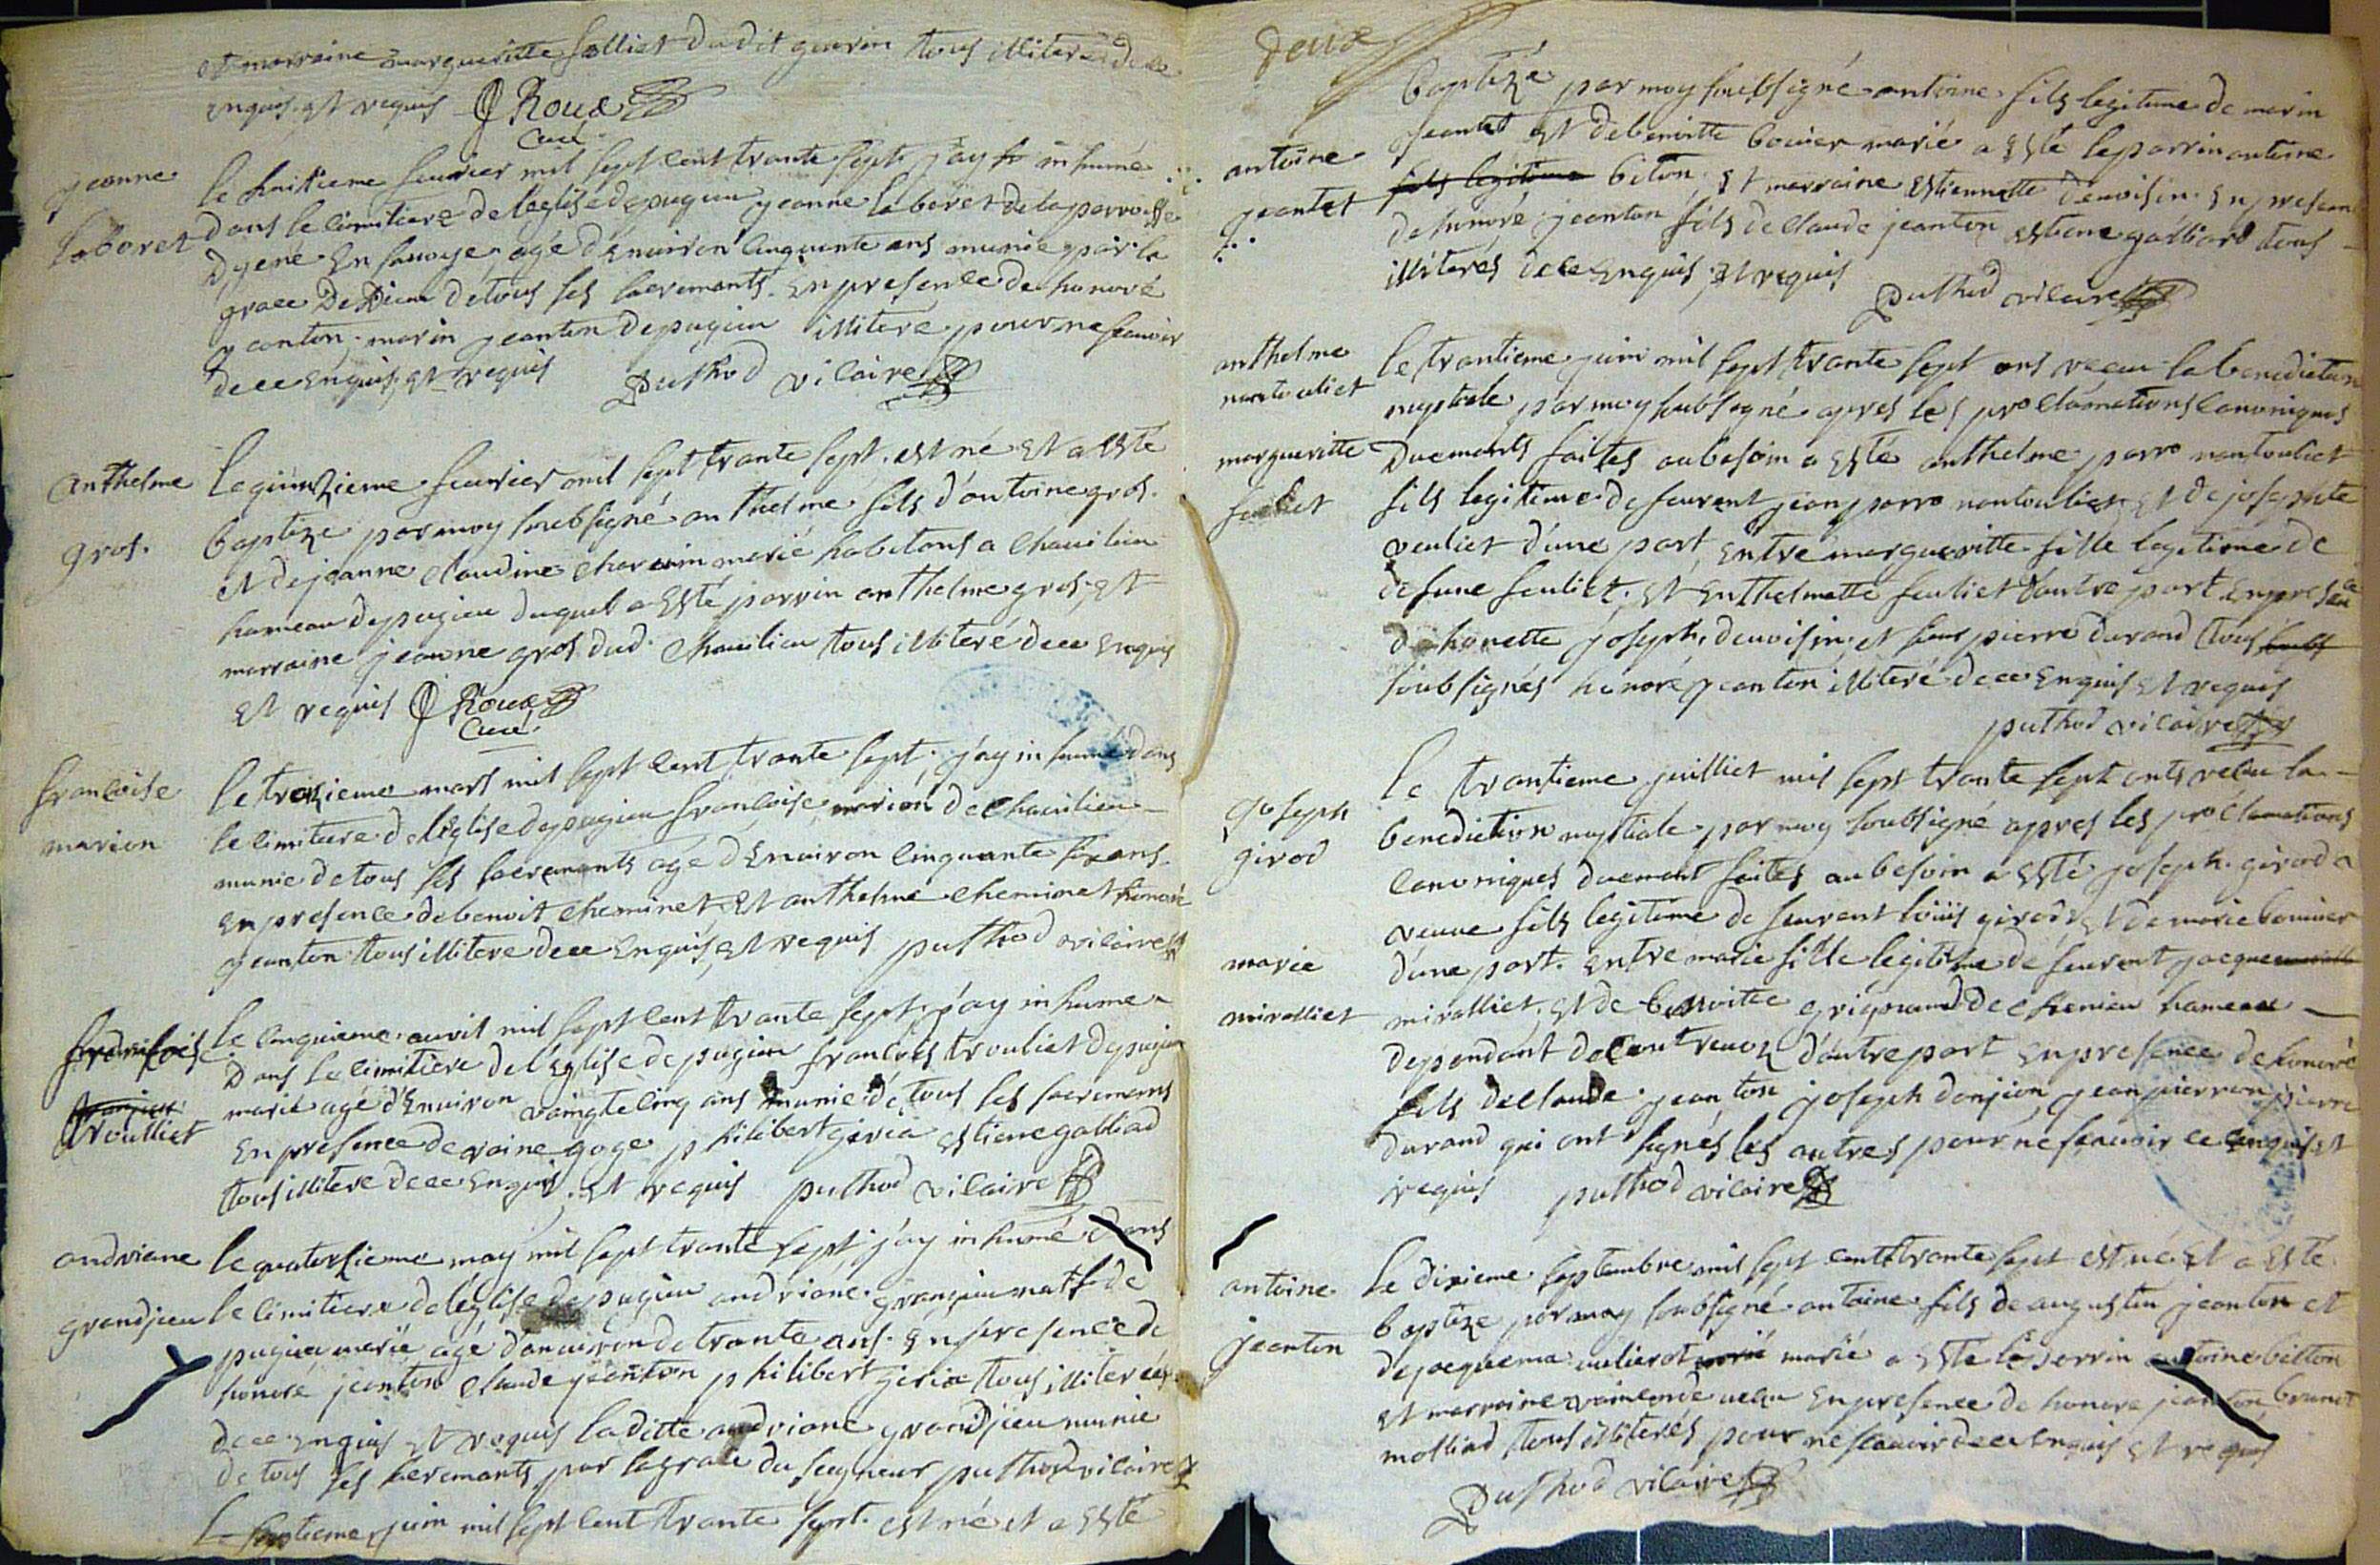 et marraine margueritte folliet dudit gueriin tous illiteré de ce
enquis et requis J Roux
Curé
jeanne
laboret
le huitieme feuvrier mil sept cent trante sept j'ay inhumé
dans le cimitiere de leglise de pugieu jeanne laboret de la parroisse
d'yene en savoye agé d'enuiron cinquante ans munie par la
grace de Dieu de tous ses sacremants en presence de honoré
jeanton, marin jeanton de pugieu illiteré pour ne scauoir
de ce enquis et requis puthod vicaire
anthelme
gros.
le quinzieme feuvrier mil sept trante sept est né et a esté
baptizé par moy soubsigné anthelme fils d'antoine gros.
et de jeanne claudine charuin marié habitans a chauilieu
hameau de pugieu duquel a esté parrin anthelme gros, et
marraine jeanne gros dud. chauilieu tous illiteré de ce enquis
et requis J Roux
Curé
francoise
marion
le treizieme mars mil sept cent trante sept, j'ay inhumé dans
le cimitiere de l'église de pugieu francoise marion de chauilieu
munie de tous ses sacremants agé d'enuiron cinquante six ans
en presence de benoit cheminet et anthelme cheminet honoré
jeanton tous illiteré de ce enquis, et requis puthod vicaire
francois
trouilliet
le cinquieme auvril mil sept cent trante sept j'ay inhume
dans le cimitiere de l'église de pugieu francois trouliet de pugieu
marié agé d'enuiron vaingte cinq ans munie de tous ses sacremens
en presence de raine goge philibert giria estiene galliad
tous illiteré de ce enquis, et requis puthod vicaire
andriane
grandjeu
le quatorzieme may mil sept trante sept j'ay inhumé dans
le cimitiere de léglise de pugieu andriane granjeu de
pugieu marié agé d'enuiron de trante ans. en presence de
honoré jeanton claude jeanton philibert giria tous illiterés
de ce enquis et requis la ditte andriane grandjeu munie
de tous ses sacremants par la grace du seigneur puthod vicaire
le septieme juin mil sept cent trante sept. est né et a esté
deux
antoine
jeantet
baptizé par moy soubsigné antoine fils legitime de marin
jeantet et de benoitte bouier marié a esté le parrin antoine
fils legitime biton, et marraine estiennette deuoisin en presence
de honoré jeanton fils de claude jeanton estiene galliard tous
illiterés de ce enquis et requis
puthod vicaire
anthelme
nantouliet
margueritte
feuliet
le trantieme juin mil sept trante sept ons receu la benediction
nuptiale par moy soubsigné apres les proclamations canoniques
duemants faites au besoin a esté anthelme parro nantouliet
fils legitime de feuvent jean parro nantouliet et de josephte
veuliet d'une part, entre margueritte fille legitime de
defune feuliet, et enthelmette feuliet d'autre part en presence
d honette joseph deuoisin et sieur pierre durand tous
soubsignés honoré jeanton illiteré de ce enquis et requis
puthod vicaire
joseph
girod
marie
miralliet
le trantieme juilliet mil sept trante sept onts recu la
benediction nuptiale par moy soubsigné apres les proclamations
canoniques duemant faites au besoin a esté joseph girod
veuue fils legitime de feuvent loüis girod et de marie bouuier
d'une part. entre marie fille legitime de feuvent jacque
miralliet, et de benoitte grignand de chemieu hameau
dependant de contrevoz d'autre part en presence de honoré
fils de claude jeanton joseph donjion, jean pierron pierre
durand qui ont signés les autres pour ne scauoir ce enquis et
requis puthod vicaire
antoine
jeanton
le dixieme septembre mil sept cent trante sept est né et a esté
baptize par moy soubsigné antoine fils de augustin jeanton et
de jacquema marié a esté le parrin antoine bitton
et marraine en presence de honore jeanton benoit
molliad tous illiterés pour ne scauoir de ce enquis et requis
puthod vicaire